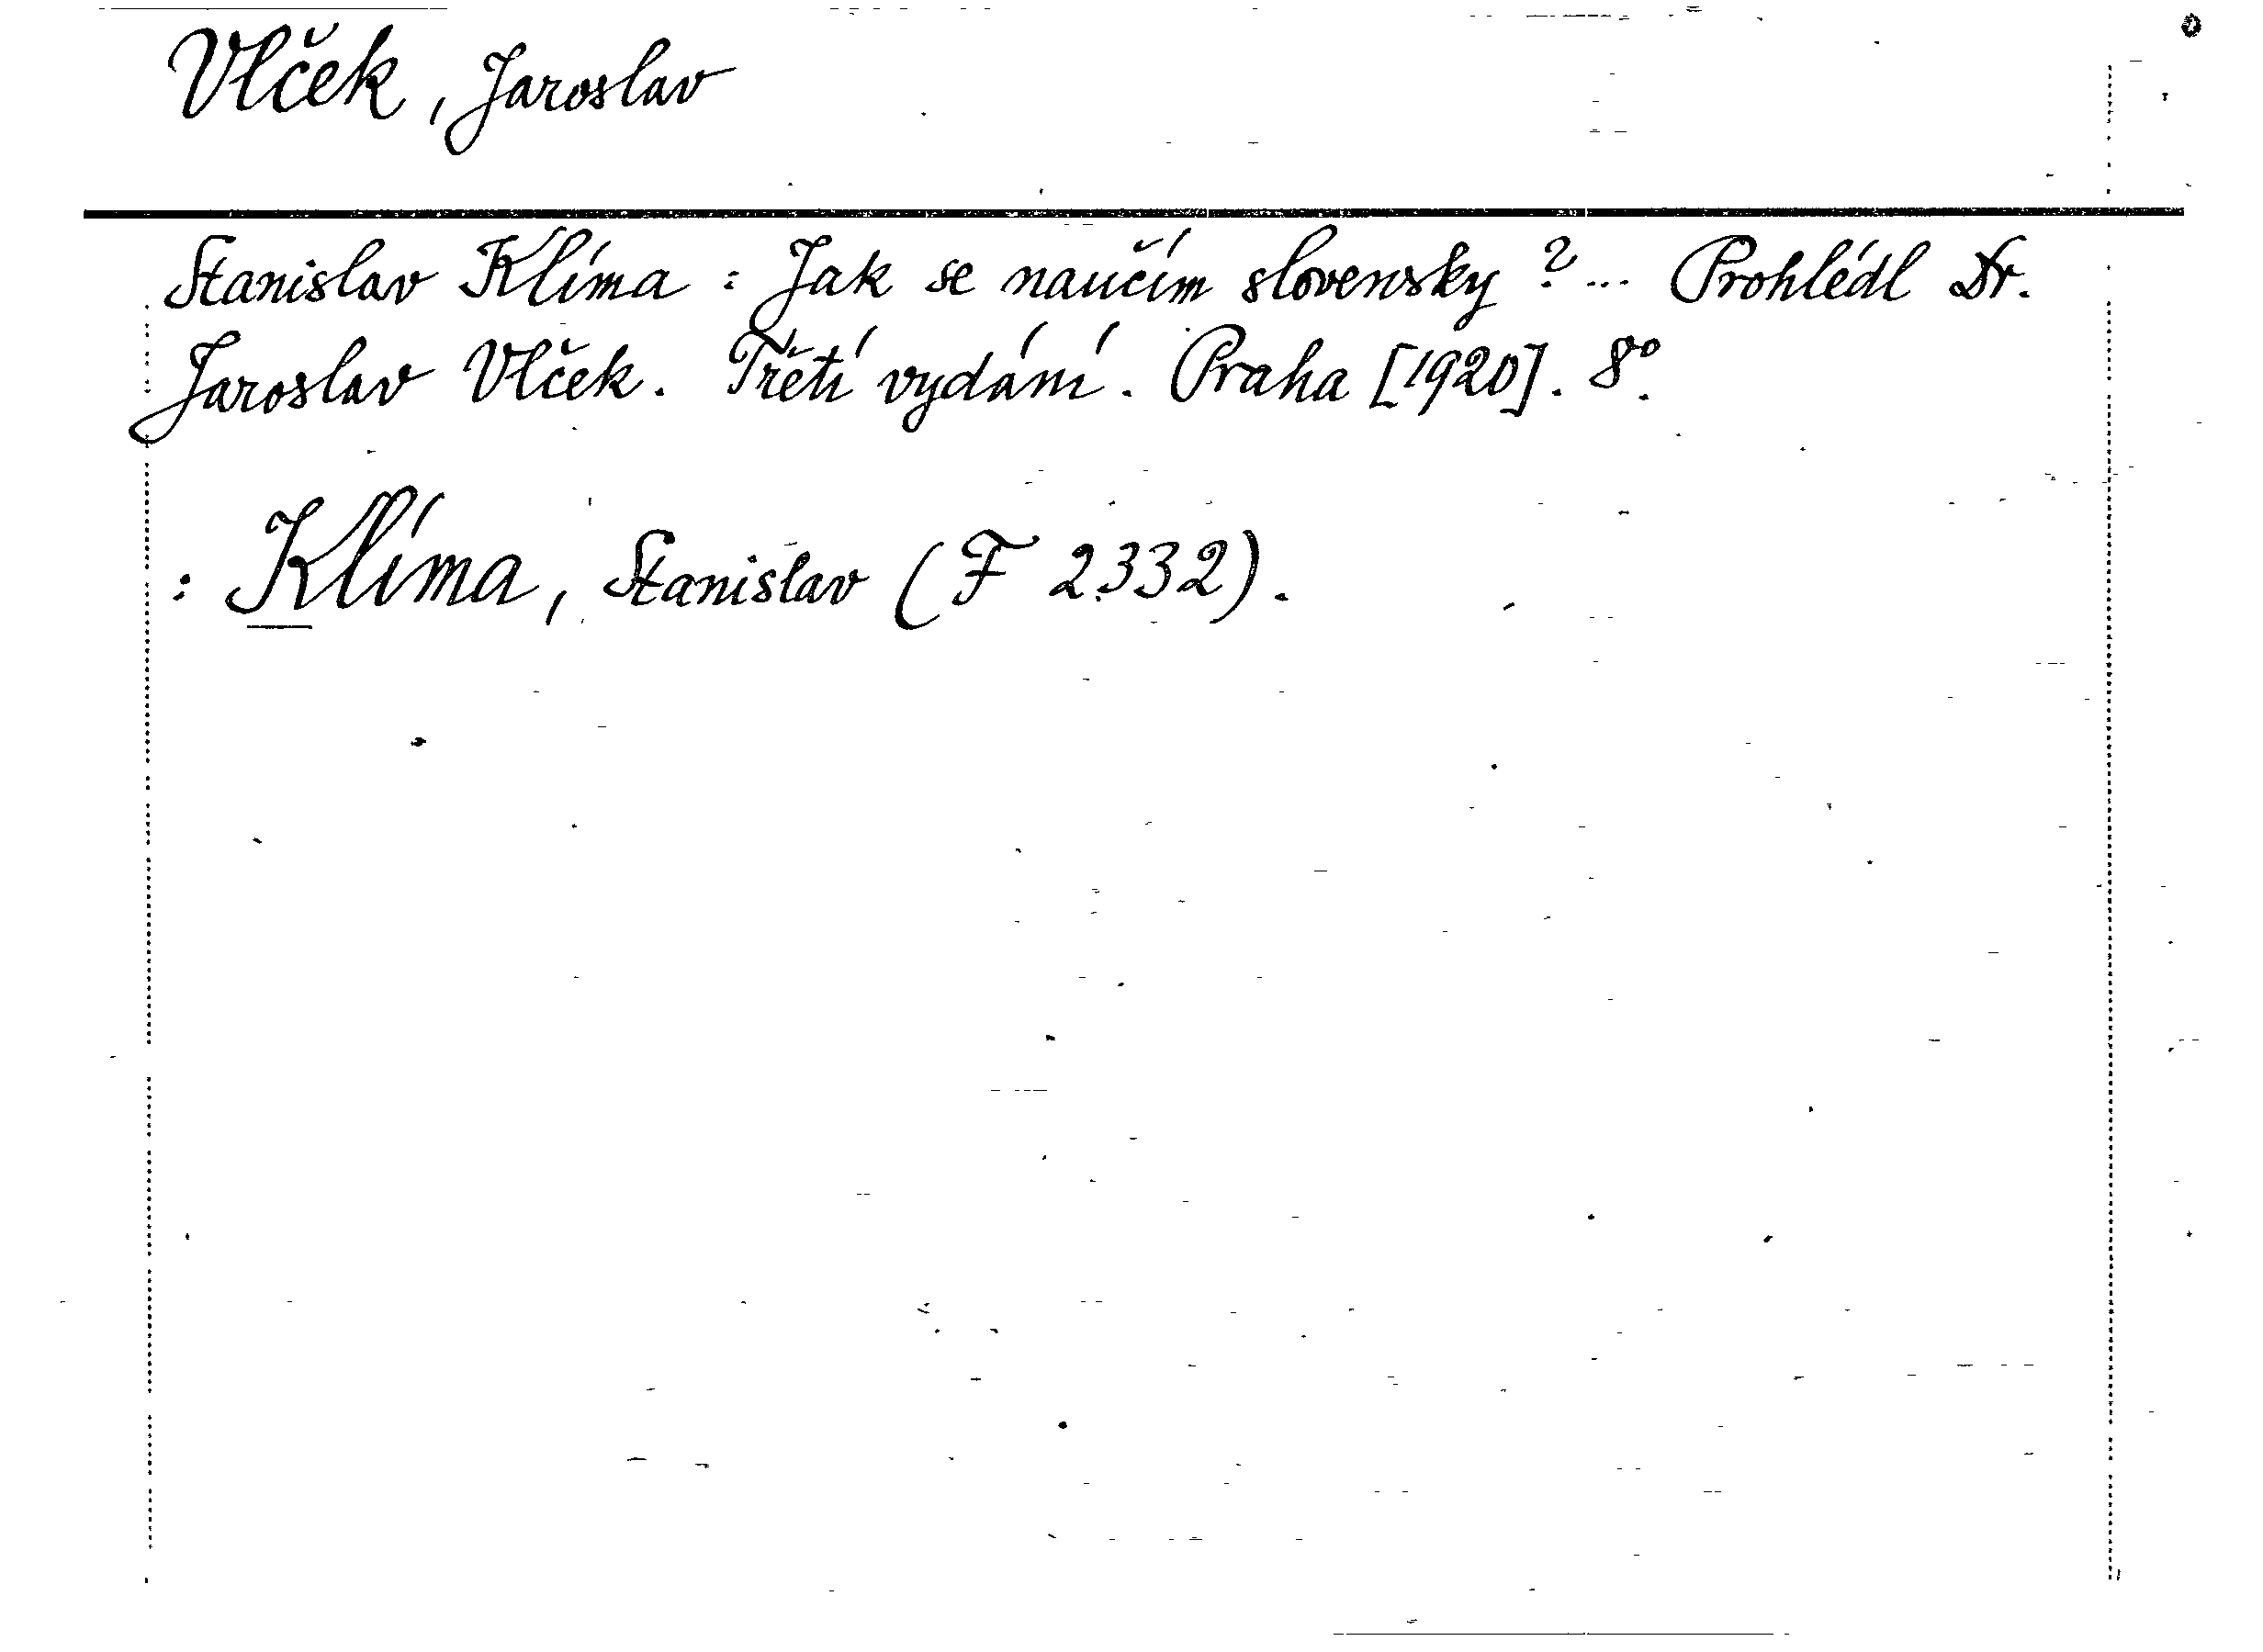 Vlček, Jaroslav
Stanislav Klíma : Jak se naučím slovensky ? ... Prohlédl Dr.
Jaroslav Vlček. Třetí vydání. Praha [1920]. 8°.
: Klíma, Stanislav (F 2332).